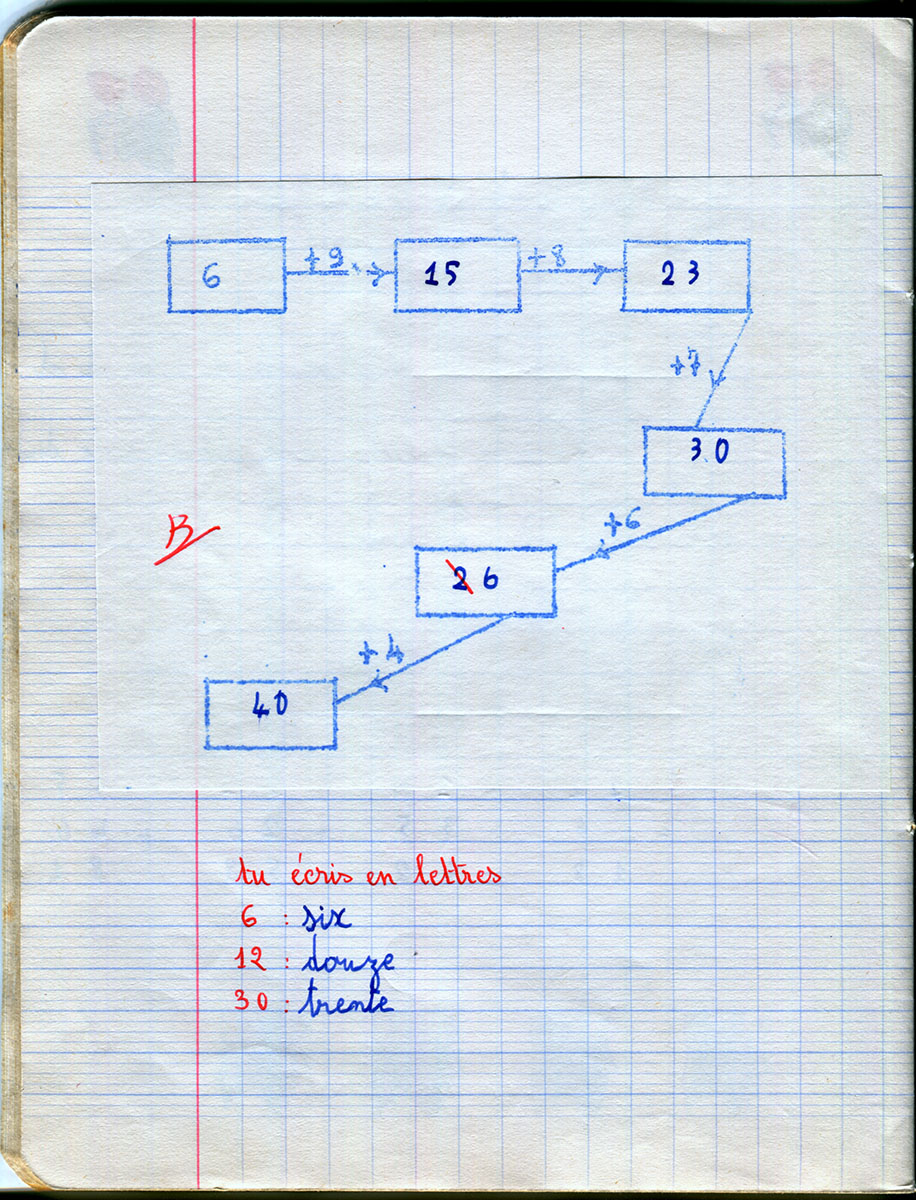 6 +9 15 +8 23
+7
30
+6
B
26
+4
40
tu écris en lettres
6 : six
12 : douze
30 : trente